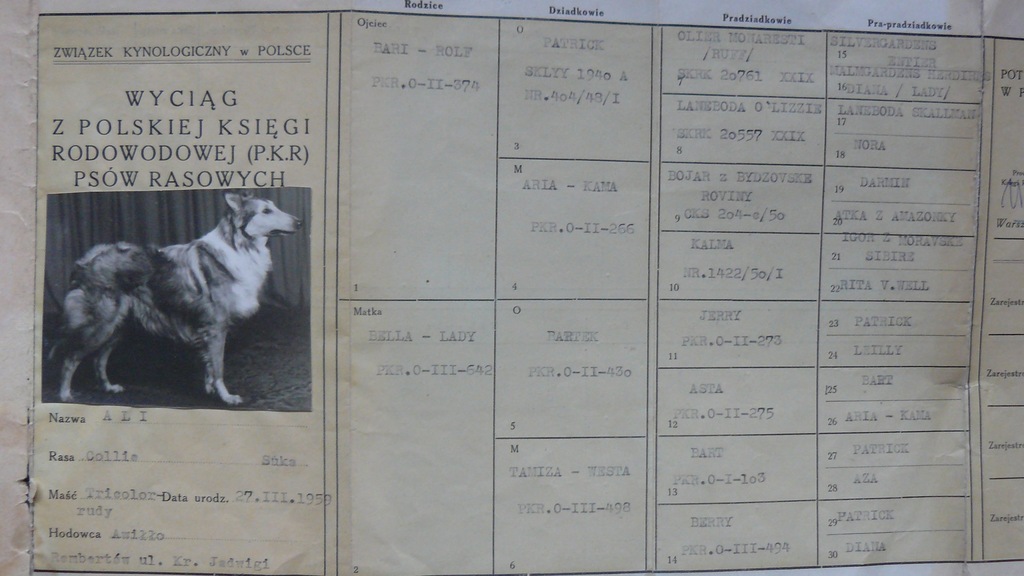 ZWIĄZEK KYNOLOGICZNY w POLSCE
WYCIĄG
Z POLSKIEJ KSIĘGI
RODOWODOWEJ (P.K.R)
PSÓW RASOWYCH
Nazwa A L I
Rasa Collie Suka
Maść Tricolor- Data urodz. 27.III.1959
rudy
Hodowca
Rembertów ul. Kr. Jadwigi
Rodzice
Ojciec
BARI - ROLF
PKR.O-II-374
1
Matka
BELLA - LADY
PKR.O-III-642
2
Dziadkowie
O
PATRICK
SKLYY 1940 A
NR.404/48/I
3
M
ARIA - KAMA
PKR.O-II-266
4
O
BARTEK
PKR.O-II-430
5
M
TAMIZA - WESTA
PKR.O-III-498
6
Pradziadkowie
OLIER MONARESTI
/RUFF/
SKRK 20761 XXIX
7
LANEBODA O'LIZZIE
SKRK 20557 XXIX
8
BOJAR z BYDZOVSKE
ROVINY
9 CKS 204-c/50
KALMA
NR.1422/50/I
10
JERRY
PKR.O-II-273
11
ASTA
PKR.O-II-275
12
BART
PKR.O-I-103
13
BERRY
14 PKR.O-III-494
Pra-pradziadkowie
SILVERGARDENS
15
MALMGARDENS
16 DIANA / LADY/
LANEBODA SKALLMAN
17
18 NORA
19 DARMIN
20 ATKA Z AMAZONKY
IGOR Z MORAVSKE
21 SIBIRE
22 RITA V.WELL
23 PATRICK
24 LEILLY
25 BART
26 ARIA - KAMA
27 PATRICK
28 AZA
29 PATRICK
30 DIANA
POT
W P
Warsz
Zarejestr
Zarejestr
Zarejestr
Zarejestr